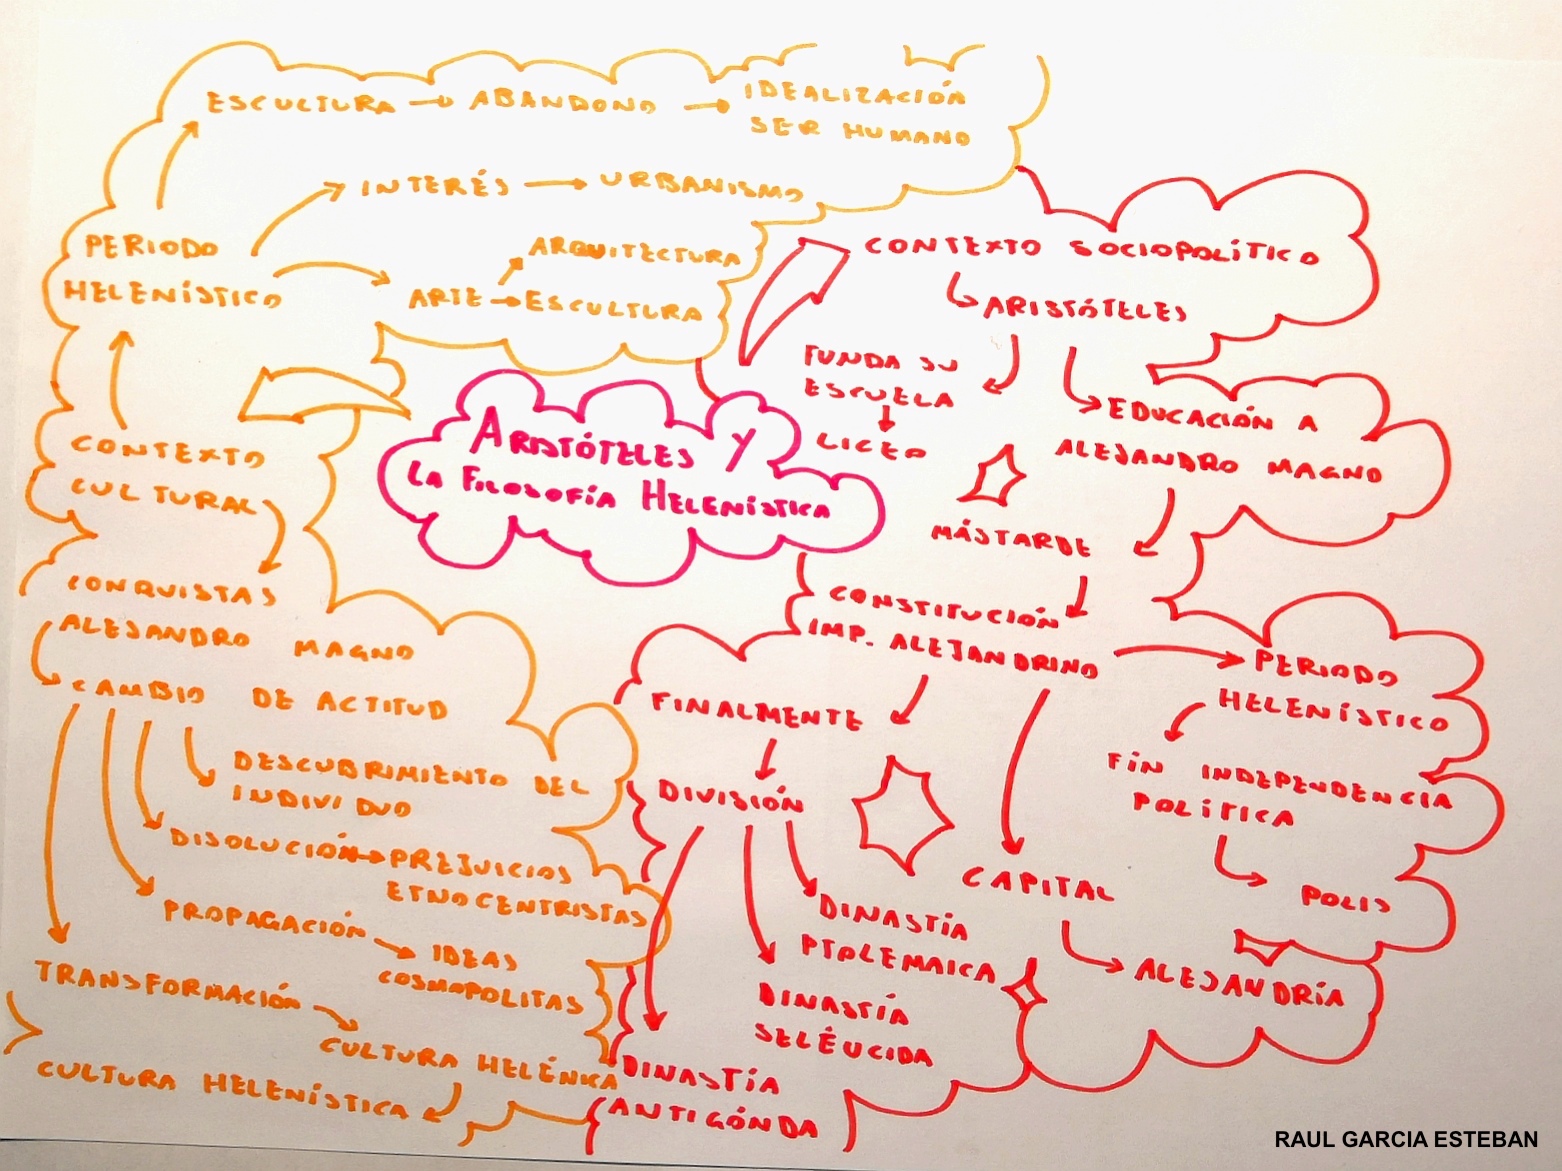 ARISTÓTELES Y
LA FILOSOFÍA HELENÍSTICA
ESCULTURA → ABANDONO → IDEALIZACIÓN
SER HUMANO
INTERÉS → URBANISMO
PERIODO
HELENÍSTICO
ARQUITECTURA
ARTE → ESCULTURA
CONTEXTO
CULTURAL
CONQUISTAS
ALEJANDRO MAGNO
CAMBIO DE ACTITUD
DESCUBRIMIENTO DEL
INDIVIDUO
DISOLUCIÓN → PREJUICIOS
ETNOCENTRISTAS
PROPAGACIÓN
IDEAS
COSMOPOLITAS
TRANSFORMACIÓN
CULTURA HELÉNICA
CULTURA HELENÍSTICA
CONTEXTO SOCIOPOLÍTICO
ARISTÓTELES
FUNDA SU
ESCUELA
LICEO
EDUCACIÓN A
ALEJANDRO MAGNO
MÁSTARDE
CONSTITUCIÓN
IMP. ALEJANDRINO
PERIODO
HELENÍSTICO
FIN INDEPENDENCIA
POLÍTICA
POLIS
FINALMENTE
DIVISIÓN
CAPITAL
ALEJANDRÍA
DINASTÍA
PTOLEMAICA
DINASTÍA
SELÉUCIDA
DINASTÍA
ANTIGÓNDA
RAUL GARCIA ESTEBAN